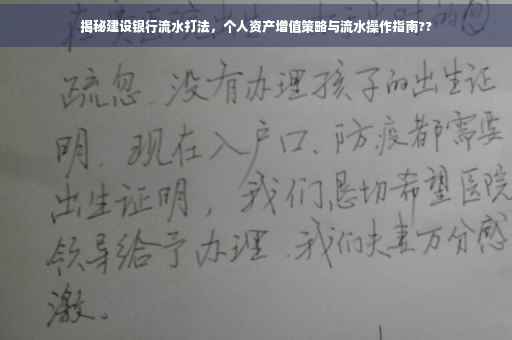 揭秘建设银行流水打法，个人资产增值策略与流水操作指南??
疏忽.没有办理孩子的出生证
明.现在入户口、防疫都需要
出生证明，我们恳切希望医院
领导给予办理.我们夫妻万分感
激。